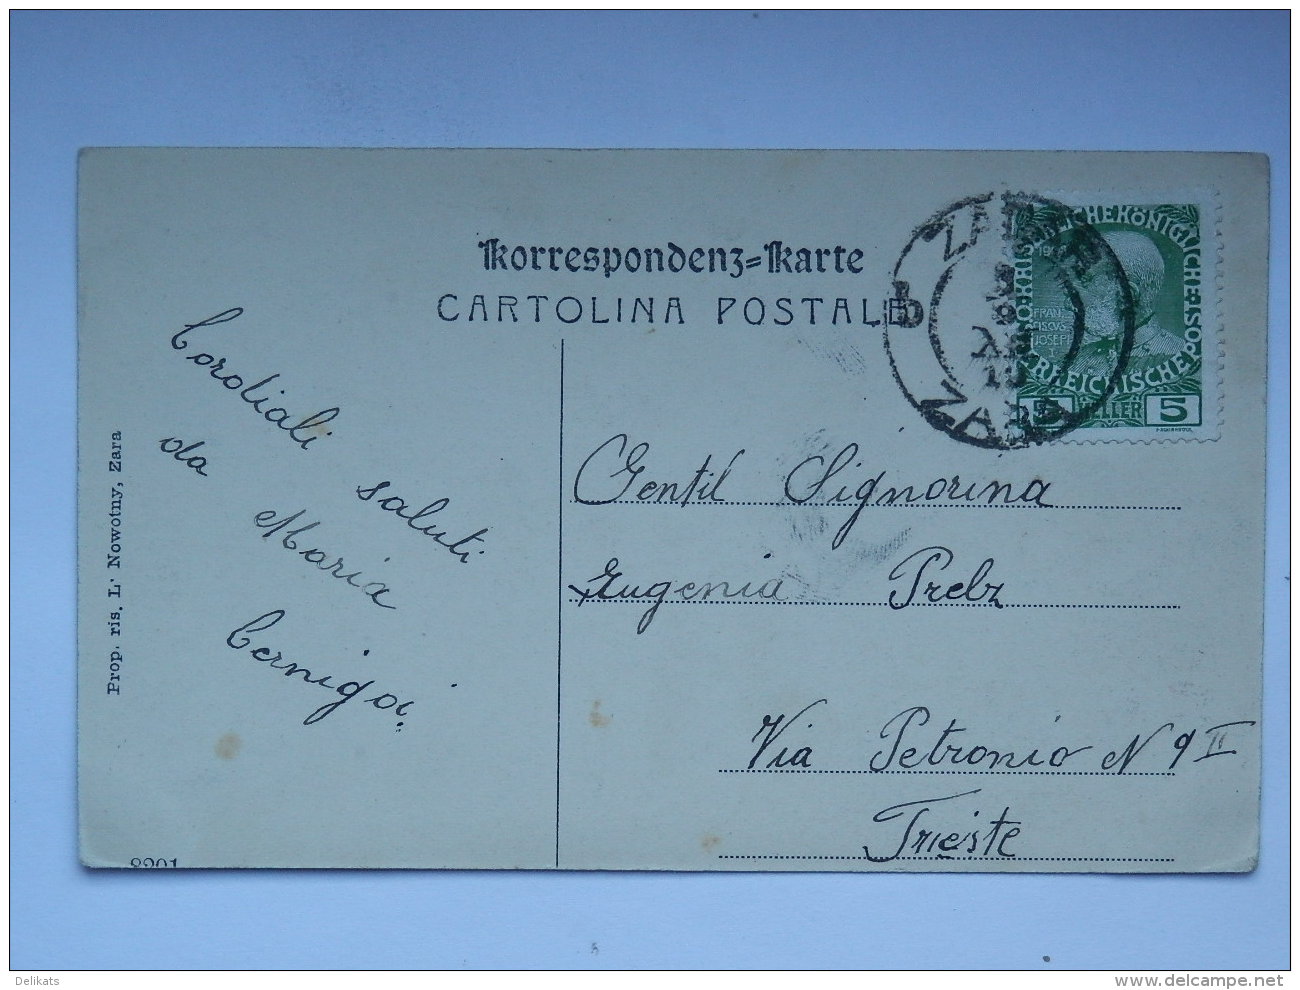 Korrespondenz=Karte
CARTOLINA POSTALE
Cordiali saluti
da Maria
Cernigoi
Prop. ris. L' Nowotny, Zara
8201
b
ZADAR
ZARA
KÖNIGLICHE
1908
FRAN
CISCVS
JOSEPH
I
ÖSTERREICHISCHE POST
5 HELLER 5
Gentil Signorina
Eugenia Prebz
Via Petronio N 9 II
Trieste
Delikats
www.delcampe.net